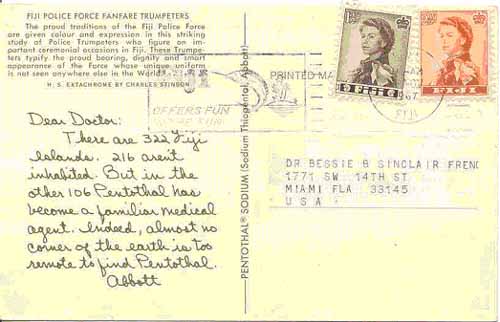 FIJI POLICE FORCE FANFARE TRUMPETERS
The proud traditions of the Fiji Police Force
are given colour and expression in this striking
study of Police Trumpeters who figure on im-
portant ceremonial occasions in Fiji. These Trumpe-
ters typify the proud bearing, dignity and smart
appearance of the Force whose unique uniform
is not seen anywhere else in the World.
H. S. EKTACHROME BY CHARLES STINSON
PRINTED MA
OFFERS FUN
FIJI
FIJI
Dear Doctor:
There are 322 Fiji
Islands. 216 aren't
inhabited. But in the
other 106 Pentothal has
become a familiar medical
agent. Indeed, almost no
corner of the earth is too
remote to find Pentothal.
Abbott
PENTOTHAL® SODIUM (Sodium Thiopental, Abbott)
DR BESSIE B SINCLAIR FRENC
1771 SW 14TH ST
MIAMI FLA 33145
U S A